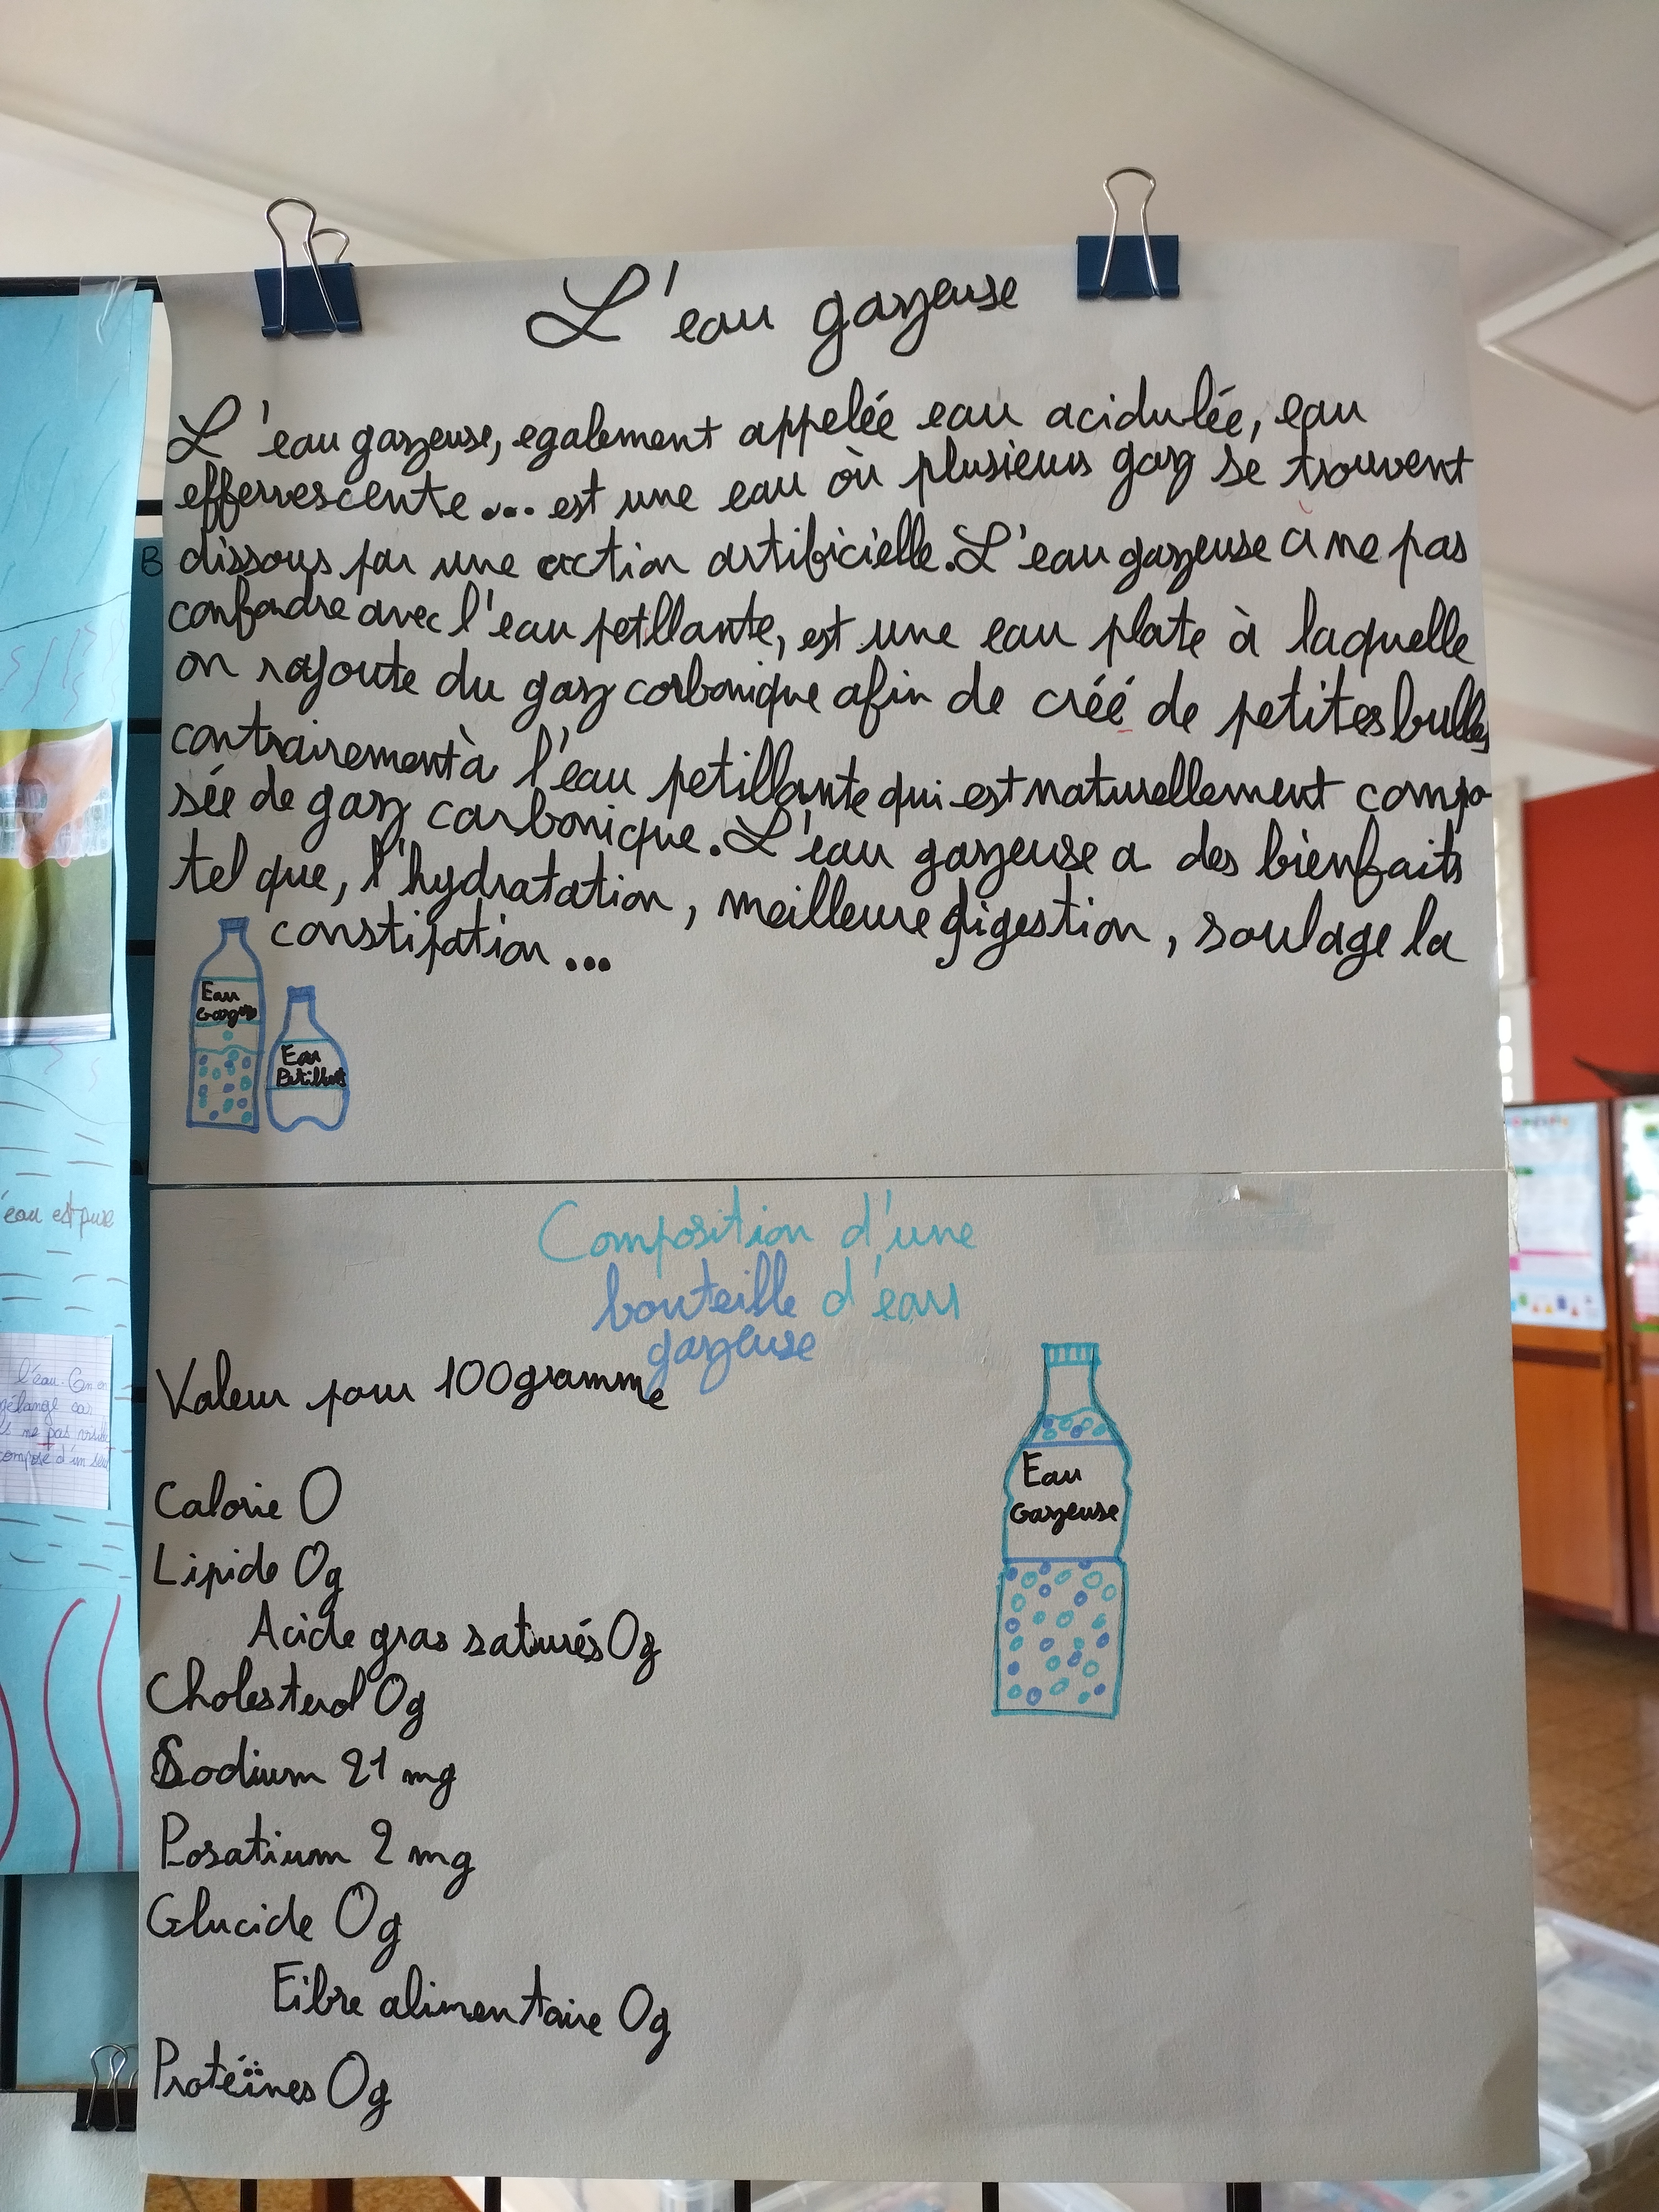 L'eau gazeuse
L'eau gazeuse, egalement appelée eau acidulée, eau
effervescente... est une eau où plusieurs gaz se trouvent
dissous par une action artificielle. L'eau gazeuse à ne pas
confondre avec l'eau petillante, est une eau plate à laquelle
on rajoute du gaz carbonique afin de créé de petites bulles
contrairement à l'eau petillante qui est naturellement compo
sée de gaz carbonique. L'eau gazeuse a des bienfaits
tel que, l'hydratation, meilleure digestion, soulage la
constipation...
Eau
Eau
Petillante
Composition d'une
bouteille d'eau
gazeuse
Valeur pour 100gramme
Calorie 0
Lipide 0g
Acide gras saturés 0g
Cholesterol 0g
Sodium 21 mg
Posatium 2 mg
Glucide 0g
Fibre alimentaire 0g
Protéïnes 0g
Eau
Gazeuse
B
eau est pure
l'eau.
élange car
ne pas
composé d'un seul